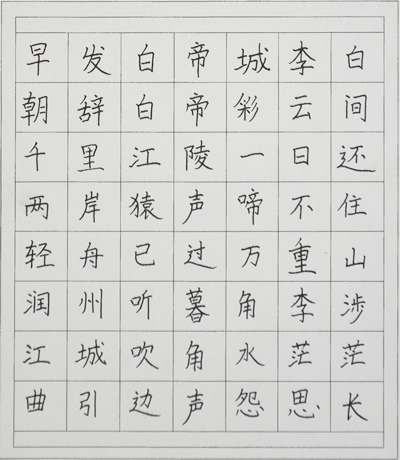 早发白帝城李白
朝辞白帝彩云间
千里江陵一日还
两岸猿声啼不住
轻舟已过万重山
润州听暮角李涉
江城吹角水茫茫
曲引边声怨思长